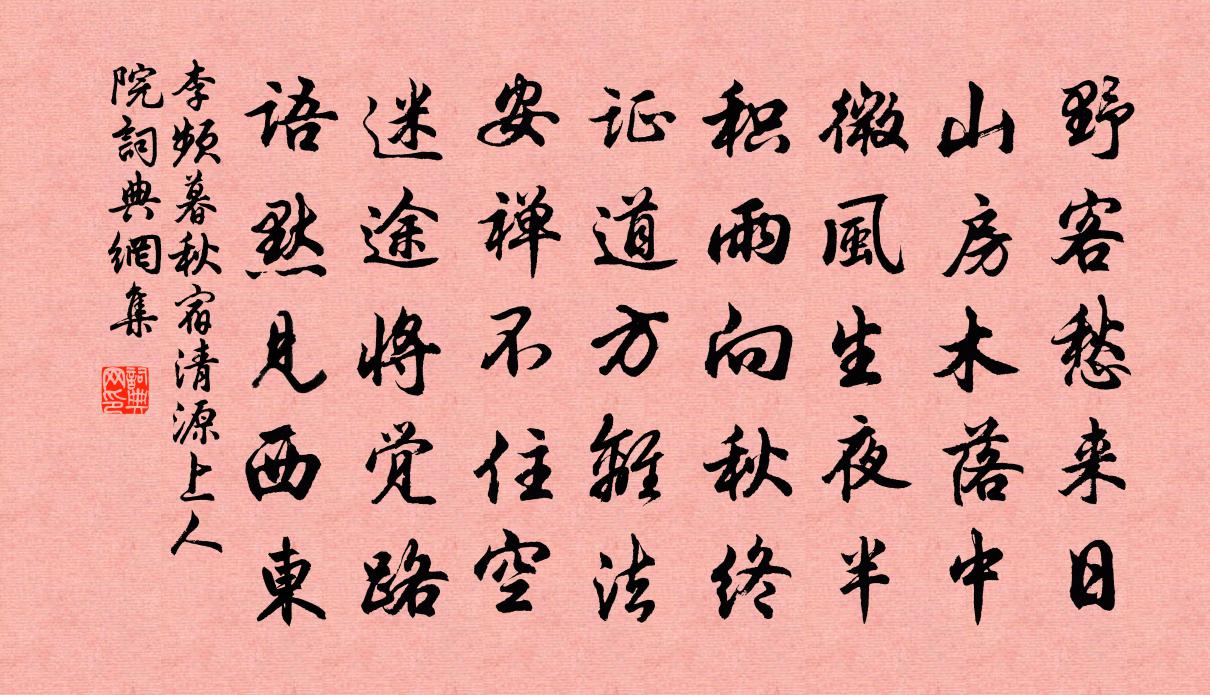 野客愁来日
山房木落中
微風生夜半
积雨向秋终
证道方離法
安禅不住空
迷途将觉路
语默见西東
李频暮秋宿清源上人
院詞典網集
詞典
网印